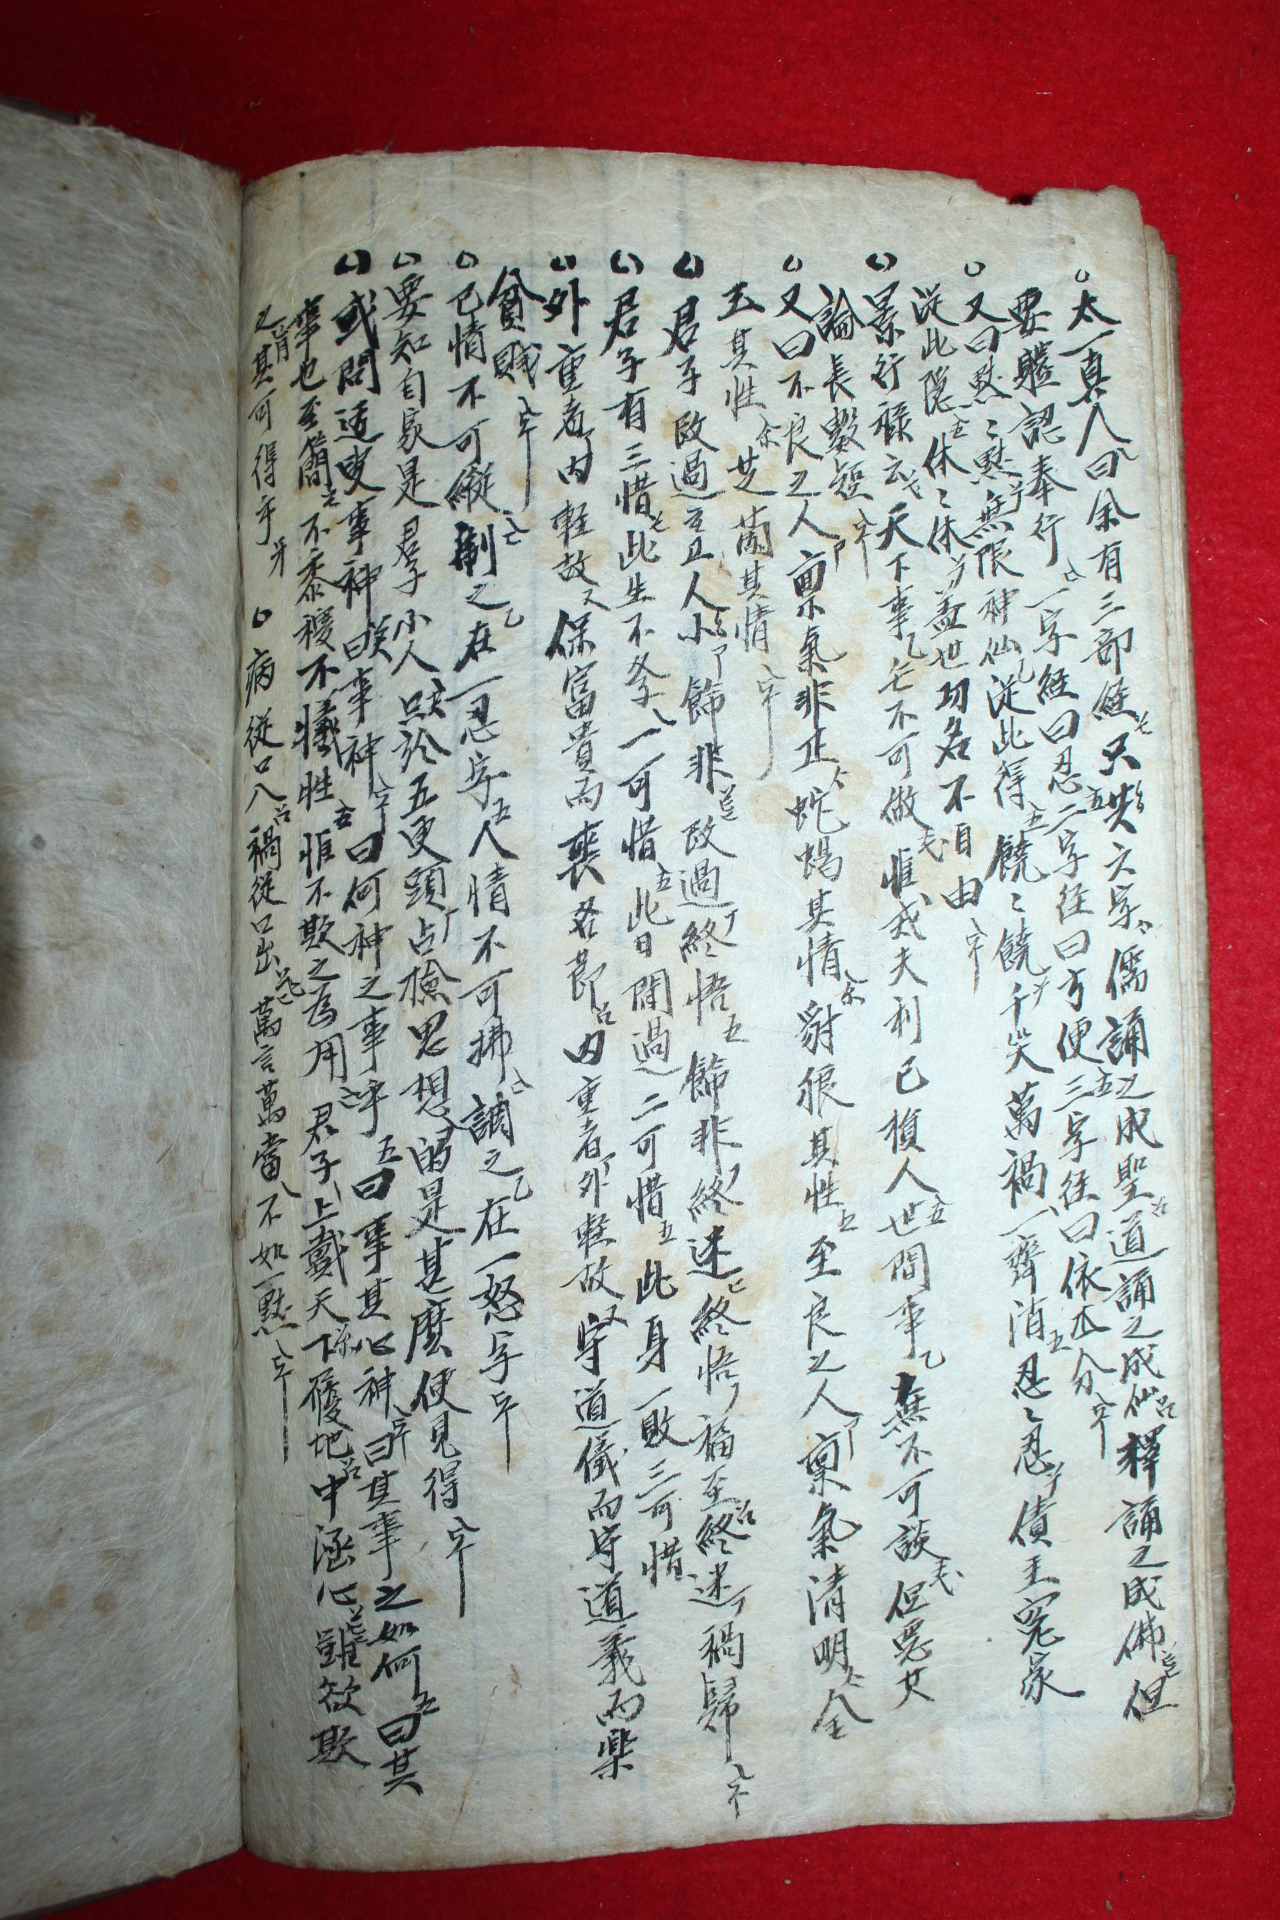 太一真人曰余有三部經只共六字儒誦之成聖道誦之成仙釋誦之成佛但
要體認奉行一字經曰忍二字經曰方便三字經曰依本分
又曰默〻默無限神仙從此得饒〻饒千災萬禍一齊消忍〻忍債主冤家
從此隠休〻休盖世功名不自由
景行祿云天下事亡不可做惟戎夫利己損人世間事無不可談但惡女
論長數短
又曰不良之人稟氣非正蛇蝎其情豺狼其性至良之人稟氣清明金
玉其性芝蘭其情
君子改過小人飾非改過終悟飾非終迷終悟福至終迷禍歸
君子有三惜此生不學一可惜此日閒過二可惜此身一敗三可惜
外重者內軽故保富貴而喪名節內重者外軽故守道儀而守道義而樂
貧賎
己情不可縱制之在一忍字人情不可拂調之在一怒字
要知自家是君子小人只於五更頭占檢思想的是甚麽便見得
或問适叟事神曰事神曰何神之事乎曰事其心神曰其事之如何曰其
事也至簡不黍稷不犧牲惟不欺之為用君子上戴天下履地中涵心雖欲欺
之其可得乎
病從口入禍從口出萬言萬當不如一默